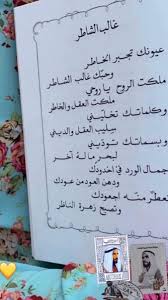 غالب الشاطر
عيونك تجبر الخاطر
وحبك غالب الشاطر
ملكت الروح يا روحي
ملكت العقل والخاطر
وكلماتك تخليني
سليب العقل والديني
وبسماتك توديني
لبحر ماله آخر
جمال الورد في اخدودك
ودهن العود من عودك
تعطر منه اجعودك
وتصبح زهرة الناظر